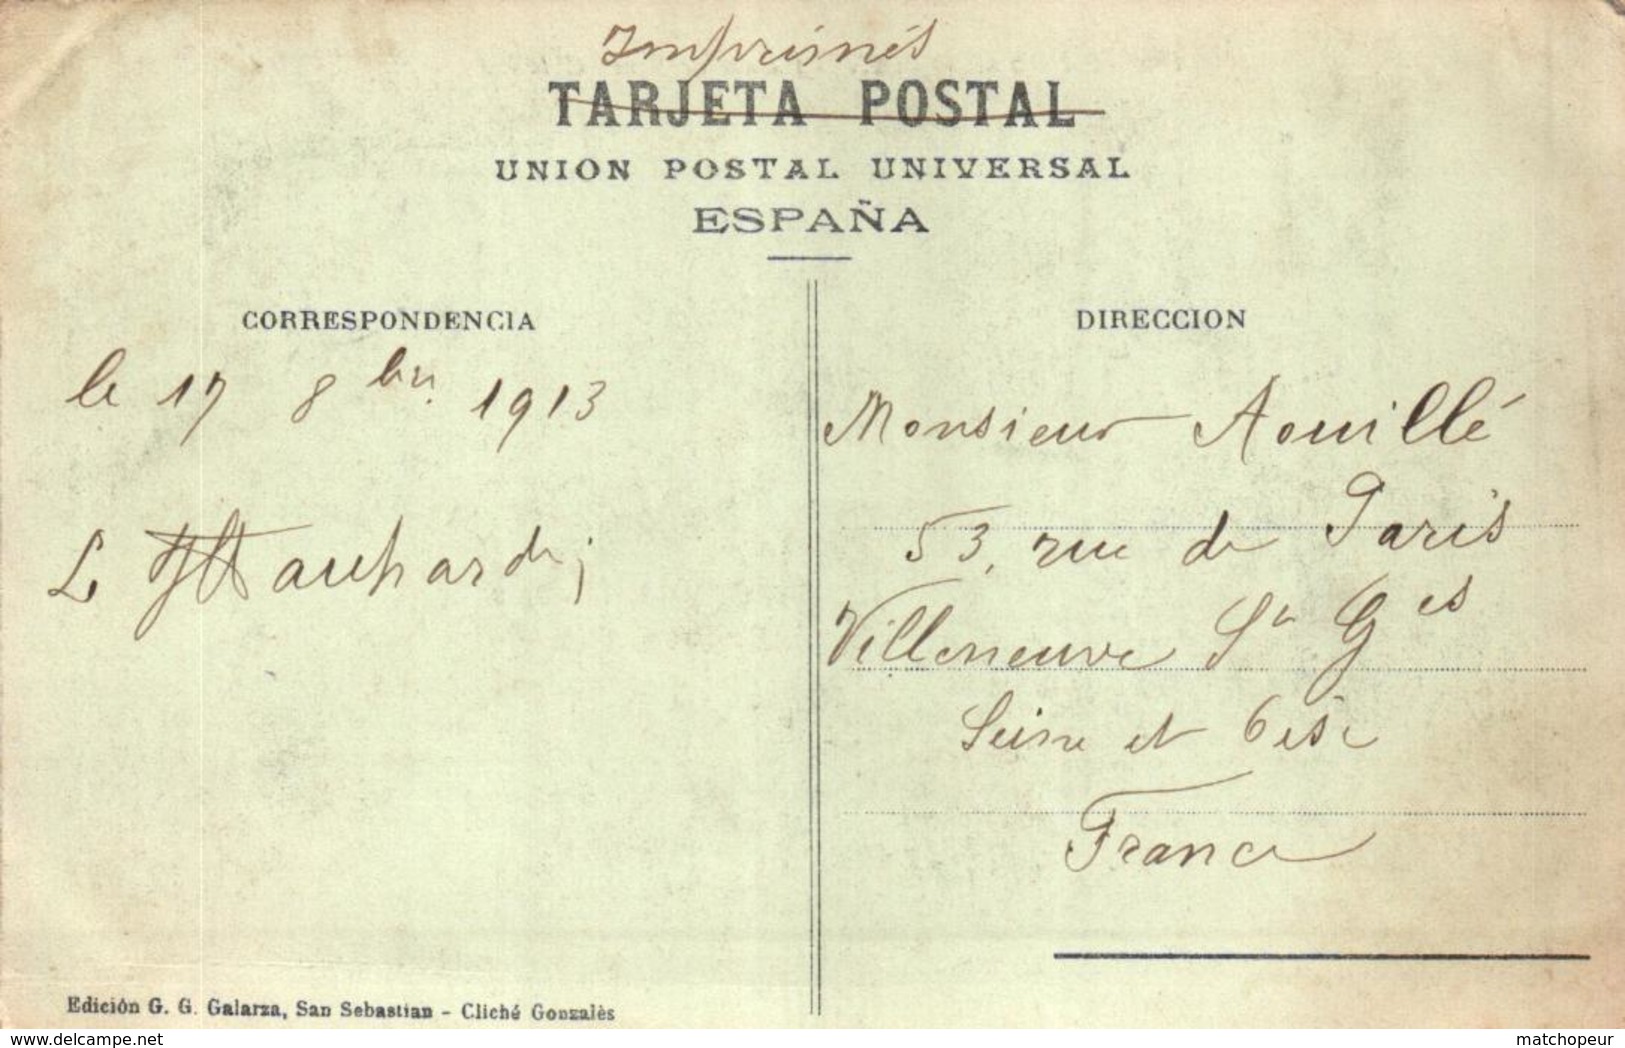 Imprimés
TARJETA POSTAL
UNION POSTAL UNIVERSAL
ESPAÑA
CORRESPONDENCIA
DIRECCION
le 17 8bre 1913
L
Monsieur Aouillé
53, rue de Paris
Villeneuve St Ges
Seine et Oise
France
Edición G. G. Galarza, San Sebastian - Cliché Gonzalès
matchopeur